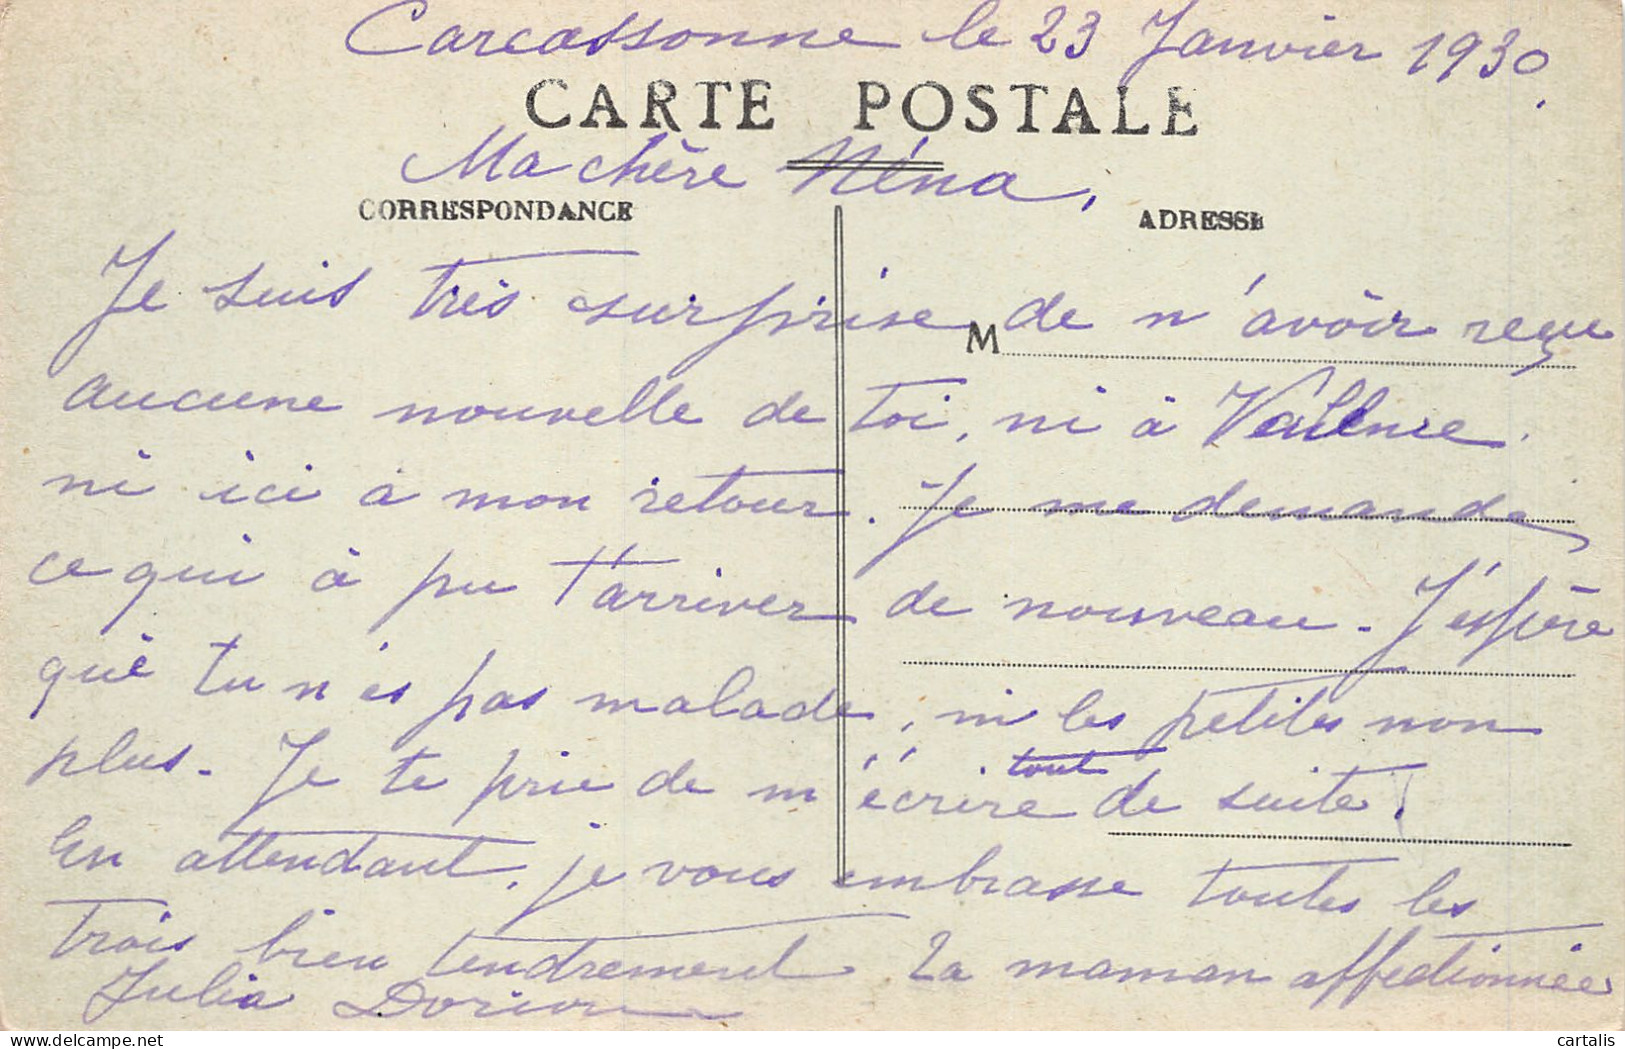 Carcassonne le 23 Janvier 1930.
CARTE POSTALE
Ma chère Néna,
CORRESPONDANCE
ADRESSE
Je suis très surprise de n'avoir reçu
M
aucune nouvelle de toi, ni à Valence
ni ici à mon retour. Je me demande
ce qui à pu t'arriver de nouveau. J'espère
què tu n'es pas malade, ni les petites non
plus. Je te prie de m'écrire tout de suite.
En attendant, je vous embrasse toutes les
trois bien tendrement Ta maman affectionnée
Julia
cartalis
delcampe.net